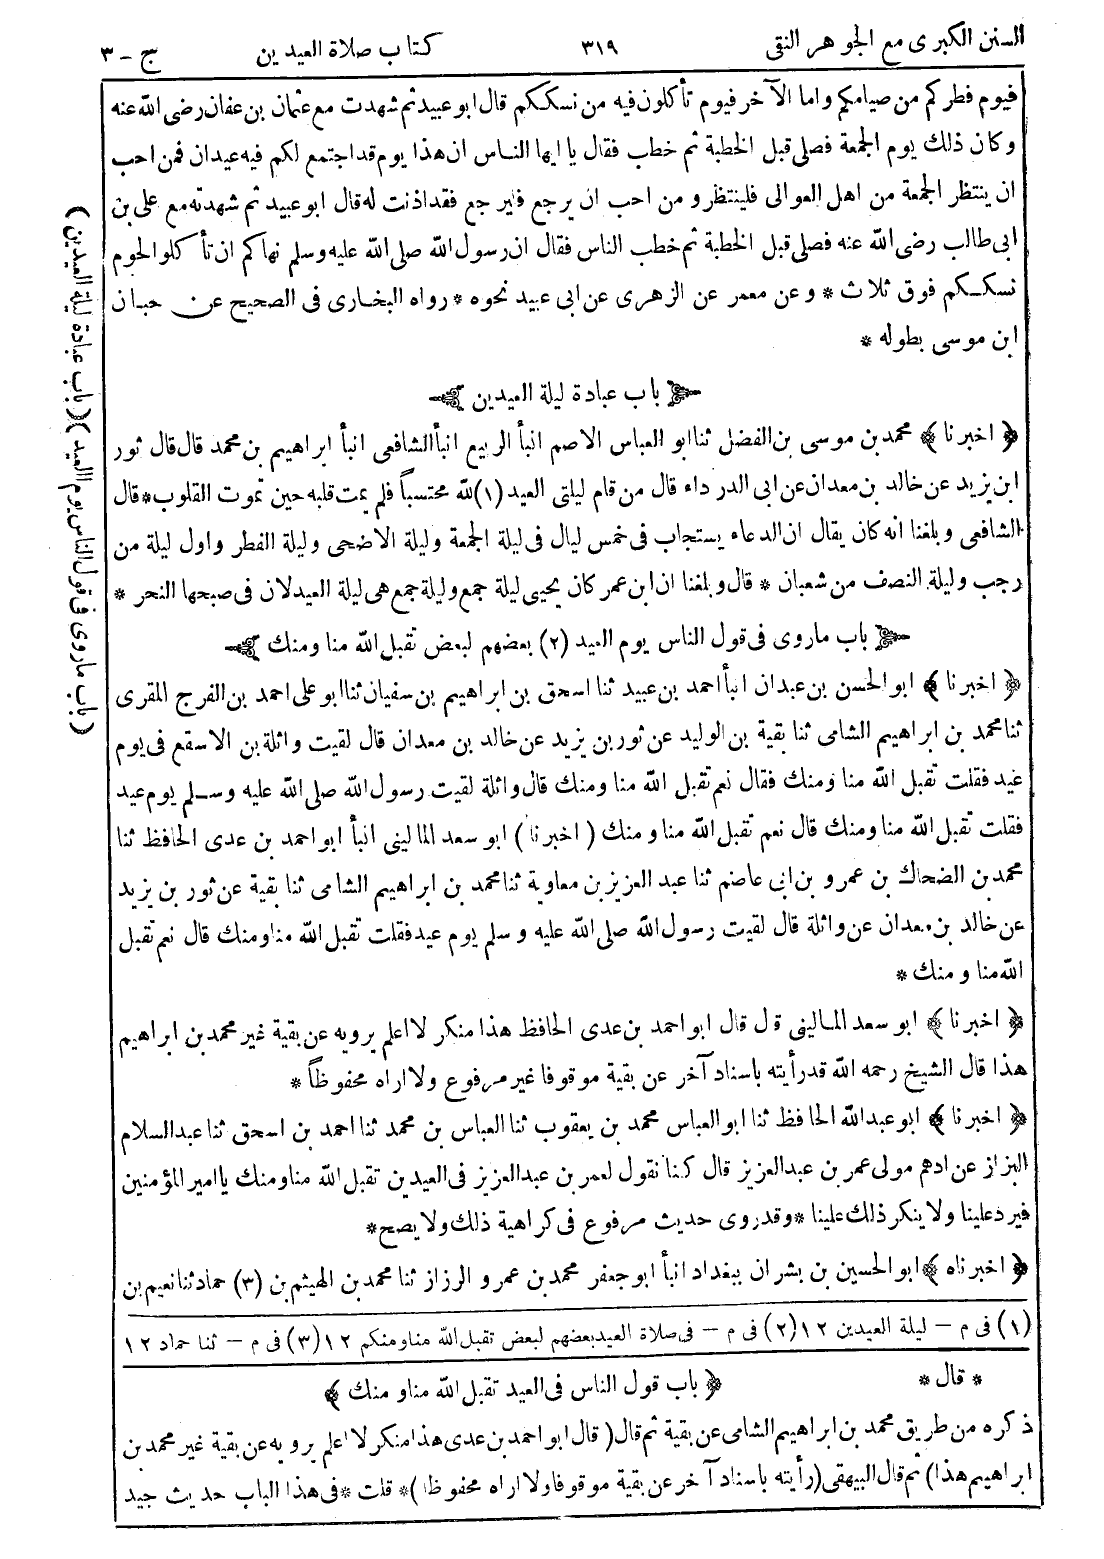 السنن الكبرى مع الجوهر النقى ٣١٩ كتاب صلاة العيدين ج - ٣
فيوم فطركم من صيامكم واما الآخر فيوم تأكلون فيه من نسككم قال ابو عبيد ثم شهدت مع عثمان بن عفان رضى الله عنه
وكان ذلك يوم الجمعة فصلى قبل الخطبة ثم خطب فقال يا ايها الناس ان هذا يوم قد اجتمع لكم فيه عيدان فمن احب
ان ينتظر الجمعة من اهل العوالى فلينتظر ومن احب ان يرجع فليرجع فقد اذنت له قال ابو عبيد ثم شهدته مع على بن
ابى طالب رضى الله عنه فصلى قبل الخطبة ثم خطب الناس فقال ان رسول الله صلى الله عليه وسلم نهاكم ان تأكلوا لحوم
نسككم فوق ثلاث * وعن معمر عن الزهرى عن ابى عبيد نحوه * رواه البخارى فى الصحيح عن حبان
ابن موسى بطوله *
باب عبادة ليلة العيدين
﴿ اخبرنا ﴾ محمد بن موسى بن الفضل ثنا ابو العباس الاصم انبأ الربيع انبأ الشافعى انبأ ابراهيم بن محمد قال قال ثور
ابن يزيد عن خالد بن معدان عن ابى الدرداء قال من قام ليلتى العيد (١) لله محتسباً فلم يمت قلبه حين تموت القلوب * قال
الشافعى وبلغنا انه كان يقال ان الدعاء يستجاب فى خمس ليال فى ليلة الجمعة وليلة الاضحى وليلة الفطر واول ليلة من
رجب وليلة النصف من شعبان * قال وبلغنا ان ابن عمر كان يحيى ليلة جمع وليلة جمع هى ليلة العيد لان فى صبحها النحر *
باب ما روى فى قول الناس يوم العيد (٢) بعضهم لبعض تقبل الله منا ومنك
﴿ اخبرنا ﴾ ابو الحسن بن عبدان انبأ احمد بن عبيد ثنا اسحق بن ابراهيم بن سفيان ثنا ابو على احمد بن الفرج المقرى
ثنا محمد بن ابراهيم الشامى ثنا بقية بن الوليد عن ثور بن يزيد عن خالد بن معدان قال لقيت واثلة بن الاسقع فى يوم
عيد فقلت تقبل الله منا ومنك فقال نعم تقبل الله منا ومنك قال واثلة لقيت رسول الله صلى الله عليه وسلم يوم عيد
فقلت تقبل الله منا ومنك قال نعم تقبل الله منا ومنك ( اخبرنا ) ابو سعد المالينى انبأ ابو احمد بن عدى الحافظ ثنا
محمد بن الضحاك بن عمرو بن ابى عاصم ثنا عبد العزيز بن معاوية ثنا محمد بن ابراهيم الشامى ثنا بقية عن ثور بن يزيد
عن خالد بن معدان عن واثلة قال لقيت رسول الله صلى الله عليه وسلم يوم عيد فقلت تقبل الله منا ومنك قال نعم تقبل
الله منا ومنك *
﴿ اخبرنا ﴾ ابو سعد المالينى قال قال ابو احمد بن عدى الحافظ هذا منكر لا اعلم يرويه عن بقية غير محمد بن ابراهيم
هذا قال الشيخ رحمه الله قد رأيته باسناد آخر عن بقية موقوفا غير مرفوع ولا اراه محفوظاً *
﴿ اخبرنا ﴾ ابو عبد الله الحافظ ثنا ابو العباس محمد بن يعقوب ثنا العباس بن محمد ثنا احمد بن اسحق ثنا عبد السلام
البزاز عن ادهم مولى عمر بن عبد العزيز قال كنا نقول لعمر بن عبد العزيز فى العيدين تقبل الله منا ومنك يا امير المؤمنين
فيرد علينا ولا ينكر ذلك علينا * وقد روى حديث مرفوع فى كراهية ذلك ولا يصح *
﴿ اخبرناه ﴾ ابو الحسين بن بشران ببغداد انبأ ابو جعفر محمد بن عمرو الرزاز ثنا محمد بن الهيثم بن (٣) حماد ثنا نعيم بن
(١) فى م - ليلة العيدين ١٢ (٢) فى م - فى صلاة العيد بعضهم لبعض تقبل الله منا ومنكم ١٢ (٣) فى م - ثنا حماد ١٢
* قال * ﴿ باب قول الناس فى العيد تقبل الله منا ومنك ﴾
ذكره من طريق محمد بن ابراهيم الشامى عن بقية ثم قال ( قال ابو احمد بن عدى هذا منكر لا اعلم يرويه عن بقية غير محمد بن
ابراهيم هذا ) ثم قال البيهقى ( رأيته باسناد آخر عن بقية موقوفا ولا اراه محفوظا ) * قلت * فى هذا الباب حديث جيد
( باب عبادة ليلة العيدين )
( باب ما روى فى قول الناس يوم العيد )